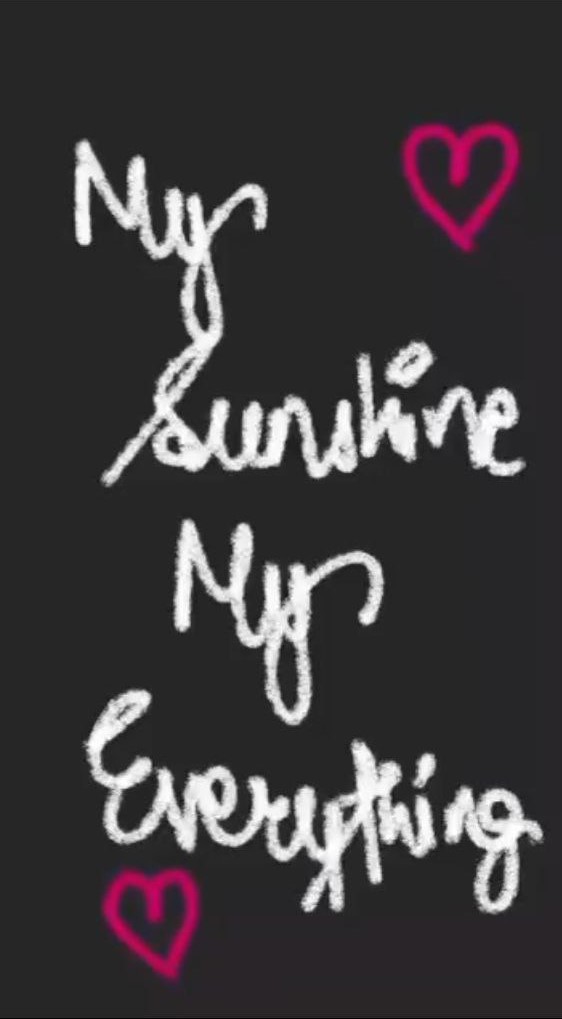 My
Sunshine
My
Everything